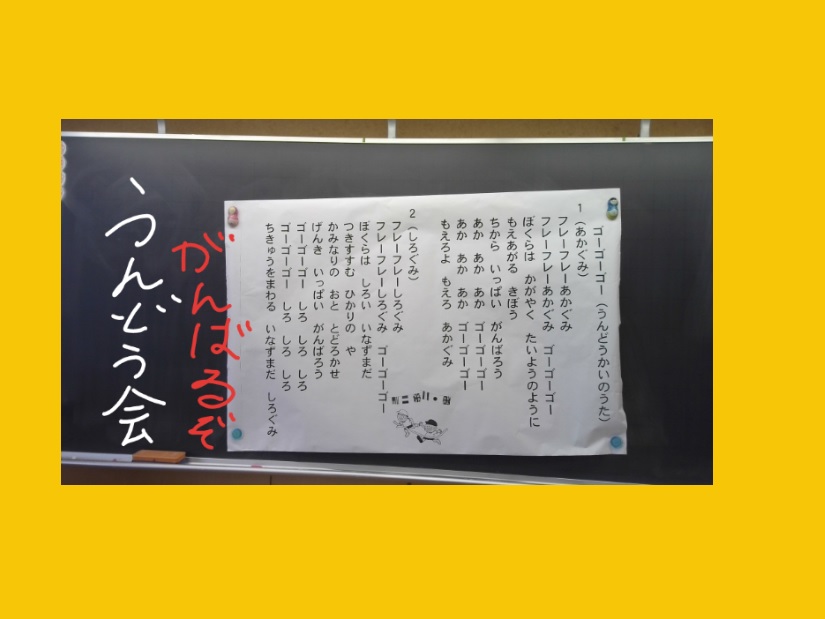 ゴーゴーゴー（うんどうかいのうた）
1（あかぐみ）
フレーフレーあかぐみ
フレーフレーあかぐみ　ゴーゴーゴー
ぼくらは　かがやく　たいようのように
もえあがる　きぼう
ちから　いっぱい　がんばろう
あか　あか　あか　ゴーゴーゴー
あか　あか　あか　ゴーゴーゴー
もえろよ　もえろ　あかぐみ
2（しろぐみ）
フレーフレーしろぐみ
フレーフレーしろぐみ　ゴーゴーゴー
ぼくらは　しろい　いなずまだ
つきすすむ　ひかりの　や
かみなりの　おと　とどろかせ
げんき　いっぱい　がんばろう
ゴーゴーゴー　しろ　しろ　しろ
ゴーゴーゴー　しろ　しろ　しろ
ちきゅうをまわる　いなずまだ　しろぐみ
がんばるぞ
うんどう会